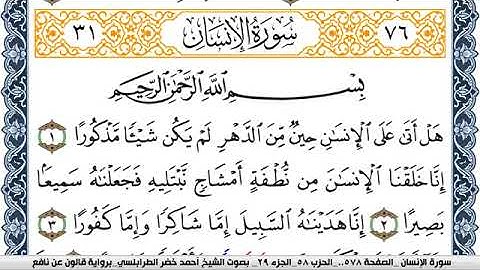 ٧٦ سُورَةُ الإِنسَانِ ٣١
بِسْمِ اللَّهِ الرَّحْمَٰنِ الرَّحِيمِ
هَلْ أَتَىٰ عَلَى ٱلْإِنسَٰنِ حِينٌ مِّنَ ٱلدَّهْرِ لَمْ يَكُن شَيْـًٔا مَّذْكُورًا ١
إِنَّا خَلَقْنَا ٱلْإِنسَٰنَ مِن نُّطْفَةٍ أَمْشَاجٍ نَّبْتَلِيهِ فَجَعَلْنَٰهُ سَمِيعًۢا
بَصِيرًا ٢ إِنَّا هَدَيْنَٰهُ ٱلسَّبِيلَ إِمَّا شَاكِرًا وَإِمَّا كَفُورًا ٣
سورة الإنسان _الصفحة ٥٧٨..الحزب ٥٨_الجزء ٢٩_ بصوت الشيخ أحمد خضر الطرابلسي_برواية قالون عن نافع